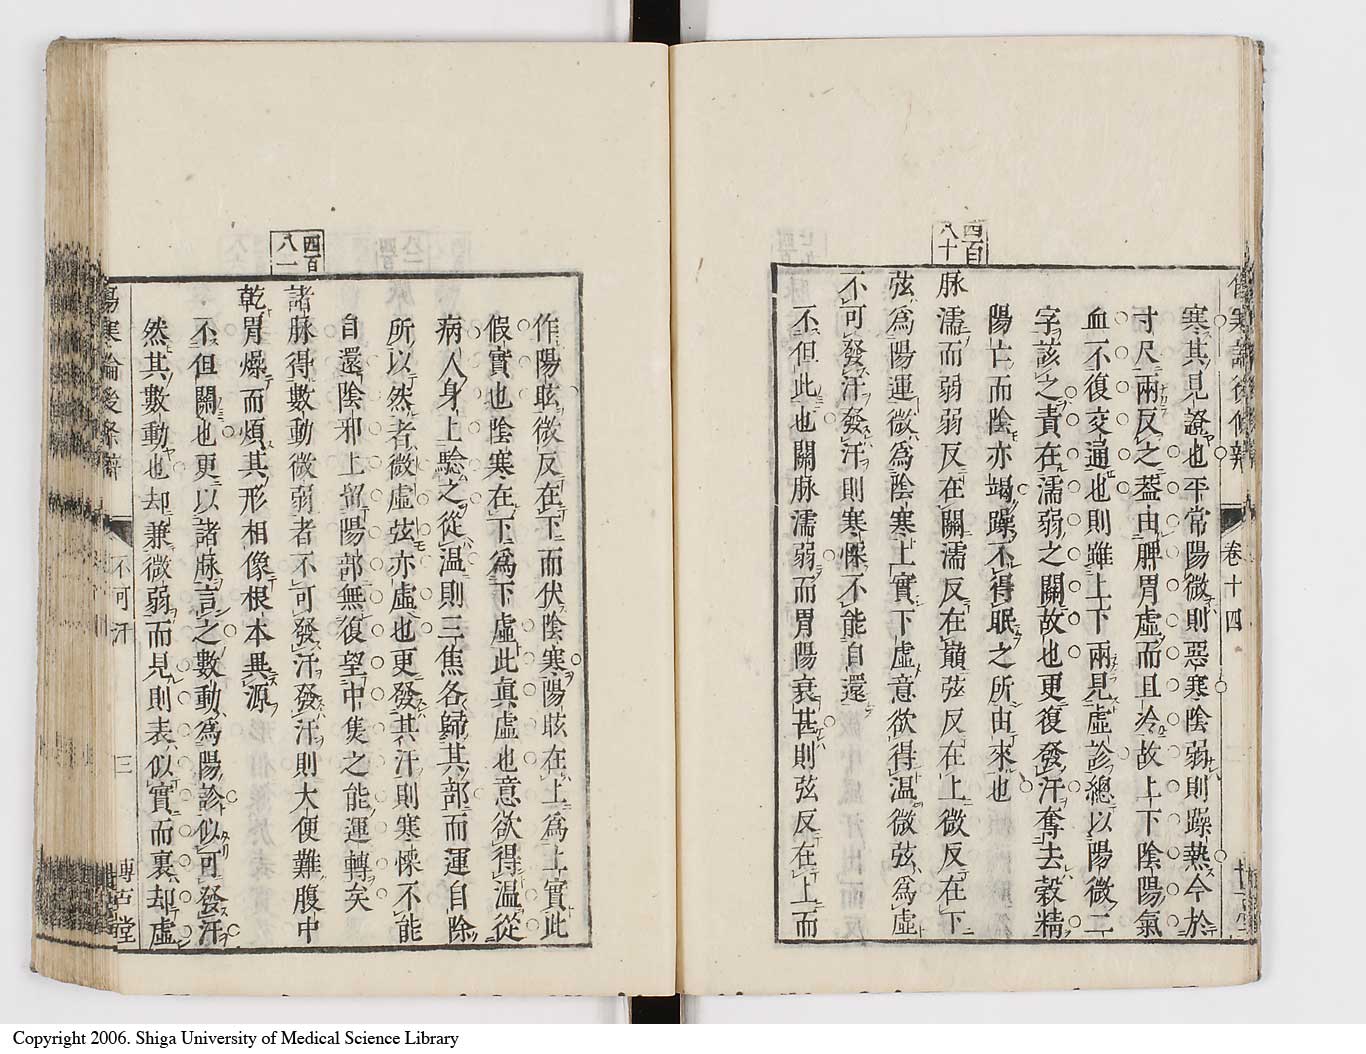 傷寒論後條辨
卷十四
寒其見證也平常陽微則惡寒陰弱則躁熱今於
寸尺兩反之葢由脾胃虛而且冷故上下陰陽氣
血不復交通也則雖上下兩見虛診總以陽微二
字該之責在濡弱之關故也更復發汗奪去穀精
陽亡而陰亦竭躁不得眠之所由來也
四百八十
脉濡而弱弱反在關濡反在巔弦反在上微反在下
弦爲陽運微爲陰寒上實下虛意欲得温微弦爲虛
不可發汗發汗則寒慄不能自還
不但此也關脉濡弱而胃陽衰甚則弦反在上而
作陽眩微反在下而伏陰寒陽眩在上爲上實此
假實也陰寒在下爲下虛此眞虛也意欲得温從
病人身上驗之從温則三焦各歸其部而運自除
所以然者微虛弦亦虛也更發其汗則寒慄不能
自還陰邪上留陽部無復望中集之能運轉矣
四百八一
諸脉得數動微弱者不可發汗發汗則大便難腹中
乾胃燥而煩其形相像根本異源
不但關也更以諸脉言之數動爲陽診似可發汗
然其數動也却兼微弱而見則表似實而裏却虛
傷寒論後條辨
不可汗
三
博古堂
Copyright 2006. Shiga University of Medical Science Library